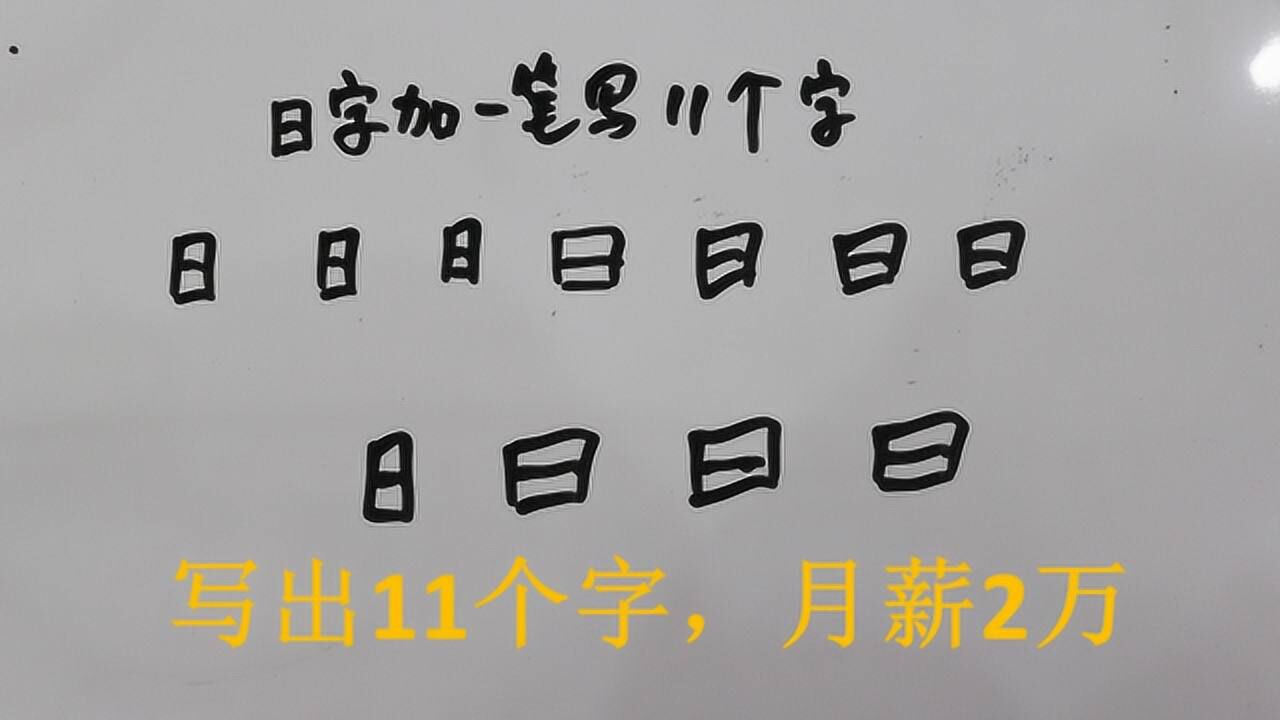 日字加一笔写11个字
日 日 日 日 日 日 日
日 日 日 日
写出11个字，月薪2万